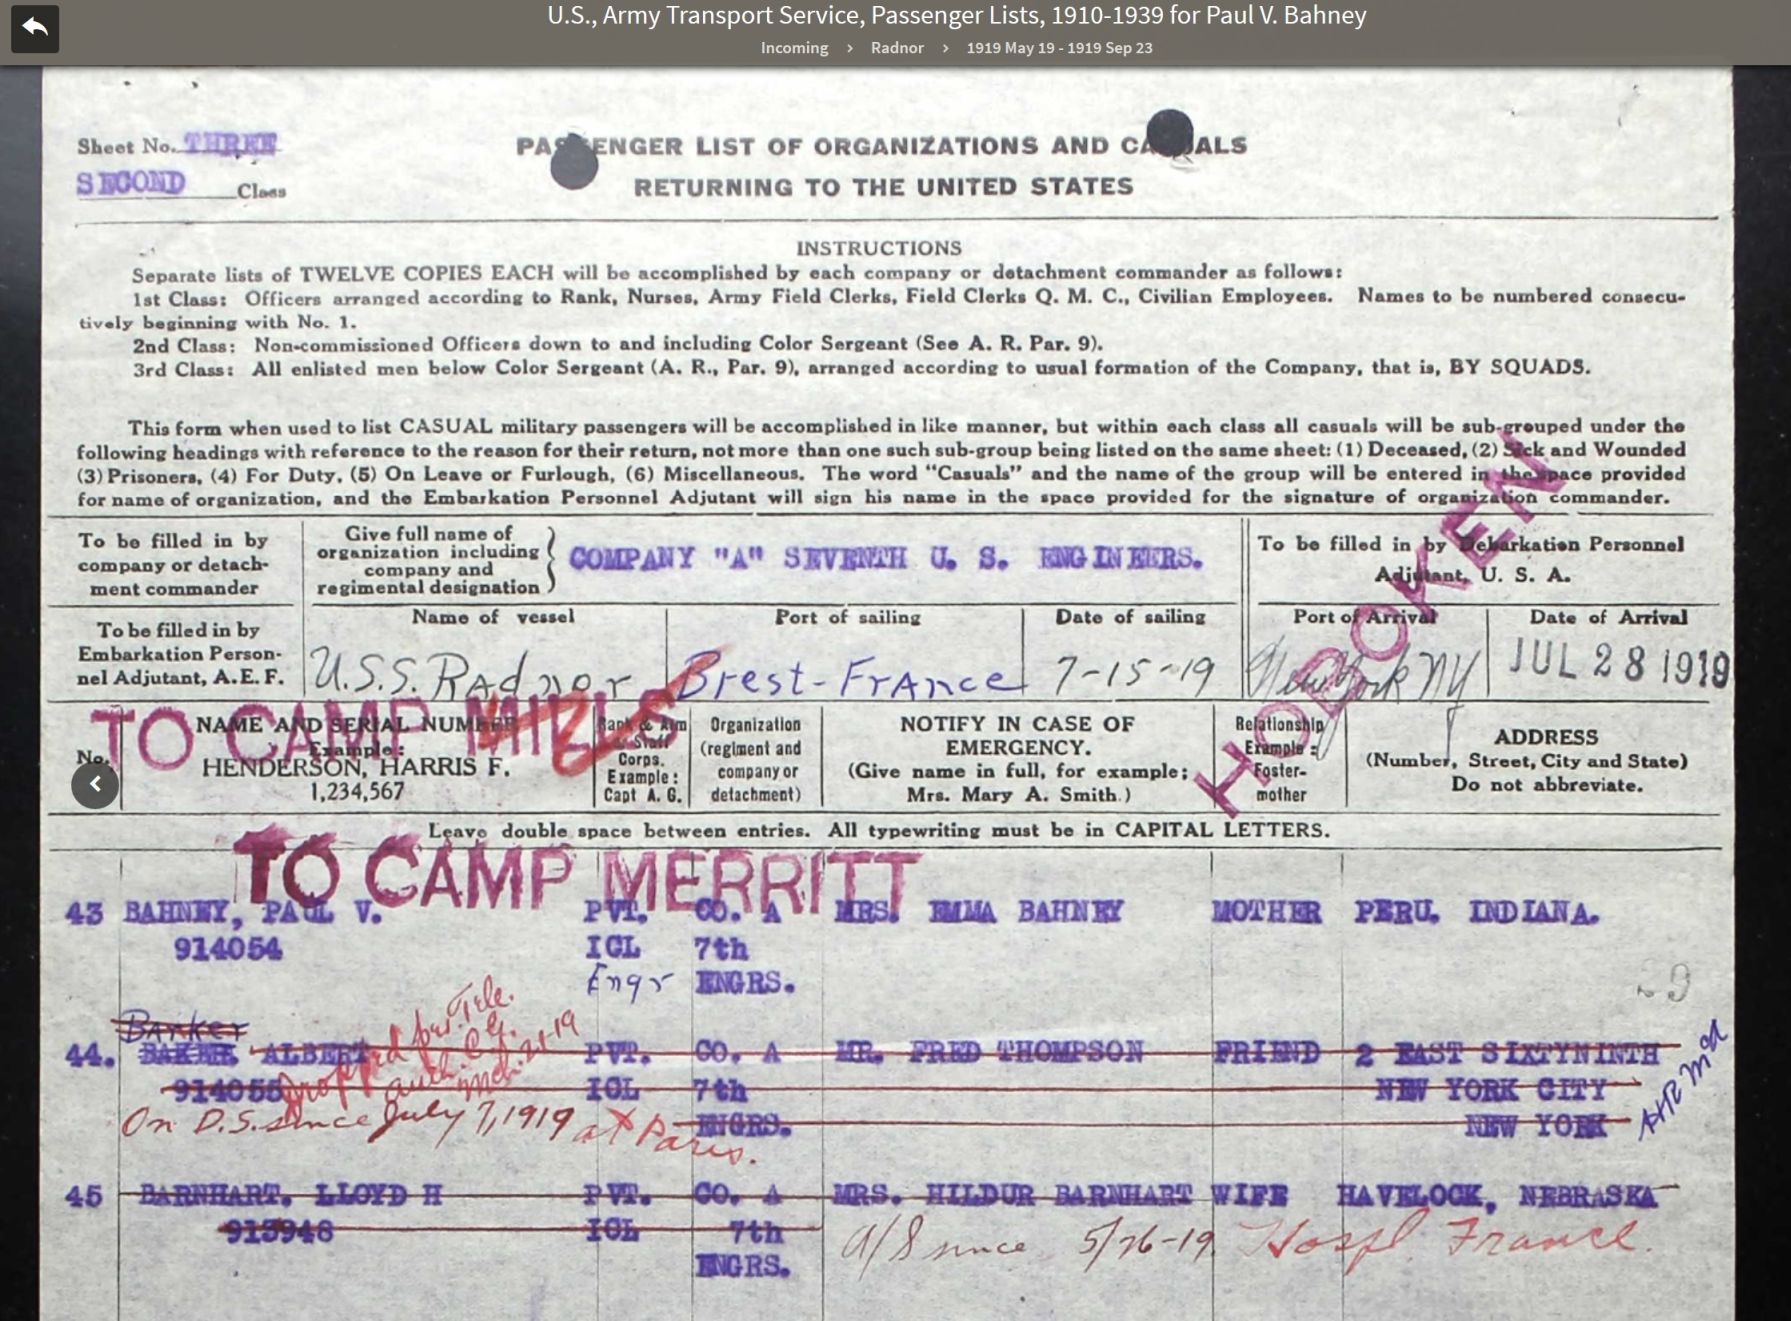 U.S., Army Transport Service, Passenger Lists, 1910-1939 for Paul V. Bahney
Incoming > Radnor > 1919 May 19 - 1919 Sep 23
Sheet No. THREE
SECOND Class
PASSENGER LIST OF ORGANIZATIONS AND CASUALS
RETURNING TO THE UNITED STATES
INSTRUCTIONS
Separate lists of TWELVE COPIES EACH will be accomplished by each company or detachment commander as follows:
1st Class: Officers arranged according to Rank, Nurses, Army Field Clerks, Field Clerks Q. M. C., Civilian Employees. Names to be numbered consecu-
tively beginning with No. 1.
2nd Class: Non-commissioned Officers down to and including Color Sergeant (See A. R. Par. 9).
3rd Class: All enlisted men below Color Sergeant (A. R., Par. 9), arranged according to usual formation of the Company, that is, BY SQUADS.
This form when used to list CASUAL military passengers will be accomplished in like manner, but within each class all casuals will be sub-grouped under the
following headings with reference to the reason for their return, not more than one such sub-group being listed on the same sheet: (1) Deceased, (2) Sick and Wounded
(3) Prisoners, (4) For Duty, (5) On Leave or Furlough, (6) Miscellaneous. The word "Casuals" and the name of the group will be entered in the space provided
for name of organization, and the Embarkation Personnel Adjutant will sign his name in the space provided for the signature of organization commander.
To be filled in by
company or detach-
ment commander
Give full name of
organization including
company and
regimental designation
COMPANY "A" SEVENTH U. S. ENGINEERS.
To be filled in by Debarkation Personnel
Adjutant, U. S. A.
To be filled in by
Embarkation Person-
nel Adjutant, A.E.F.
Name of vessel
U.S.S. Radnor
Port of sailing
Brest - France
Date of sailing
7-15-19
Port of Arrival
New York NY
Date of Arrival
JUL 28 1919
HOBOKEN
TO CAMP MILLS
No.
NAME AND SERIAL NUMBER
Example:
HENDERSON, HARRIS F.
1,234,567
Rank & Arm
Staff
Corps.
Example:
Capt A. G.
Organization
(regiment and
company or
detachment)
NOTIFY IN CASE OF
EMERGENCY.
(Give name in full, for example;
Mrs. Mary A. Smith.)
Relationship
Example:
Foster-
mother
ADDRESS
(Number, Street, City and State)
Do not abbreviate.
Leave double space between entries. All typewriting must be in CAPITAL LETTERS.
TO CAMP MERRITT
43 BAHNEY, PAUL V. PVT. CO. A MRS. EMMA BAHNEY MOTHER PERU, INDIANA.
914054 ICL 7th
Engr ENGRS.
29
Banker
44. BAKER, ALBERT PVT. CO. A MR. FRED THOMPSON FRIEND 2 EAST SIXTYNINTH
914055 ICL 7th NEW YORK CITY
ENGRS. NEW YORK
Dropped per. Tele.
auth. C.G.
21-19
On D.S. since July 7, 1919 at Paris.
45 BARNHART. LLOYD H PVT. CO. A MRS. HILDUR BARNHART WIFE HAVELOCK, NEBRASKA
913948 ICL 7th
ENGRS.
a/S since 5/26-19. Hospl France.